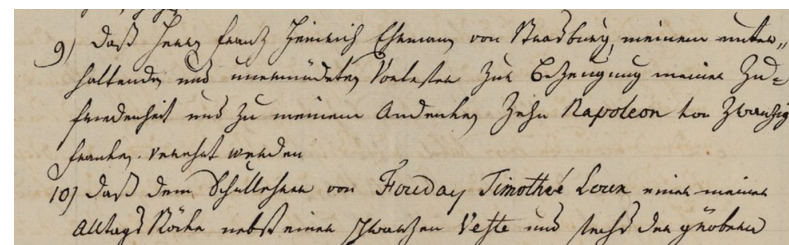 9) Daß Herrn Franz Heinrich Ehrmann von Straßburg, meinem unter„
haltenden und unermüdeten Vorleser zur Bezeugung meiner Zu=
friedenheit und zu meinem Andenken zehn Napoleon von zwanzig
Franken verehrt werden
10) Daß dem Schullehrer von Fouday Timothée Loux einer meiner
Alltags Röcke nebst einer schwarzen Veste und sechs der gröberen